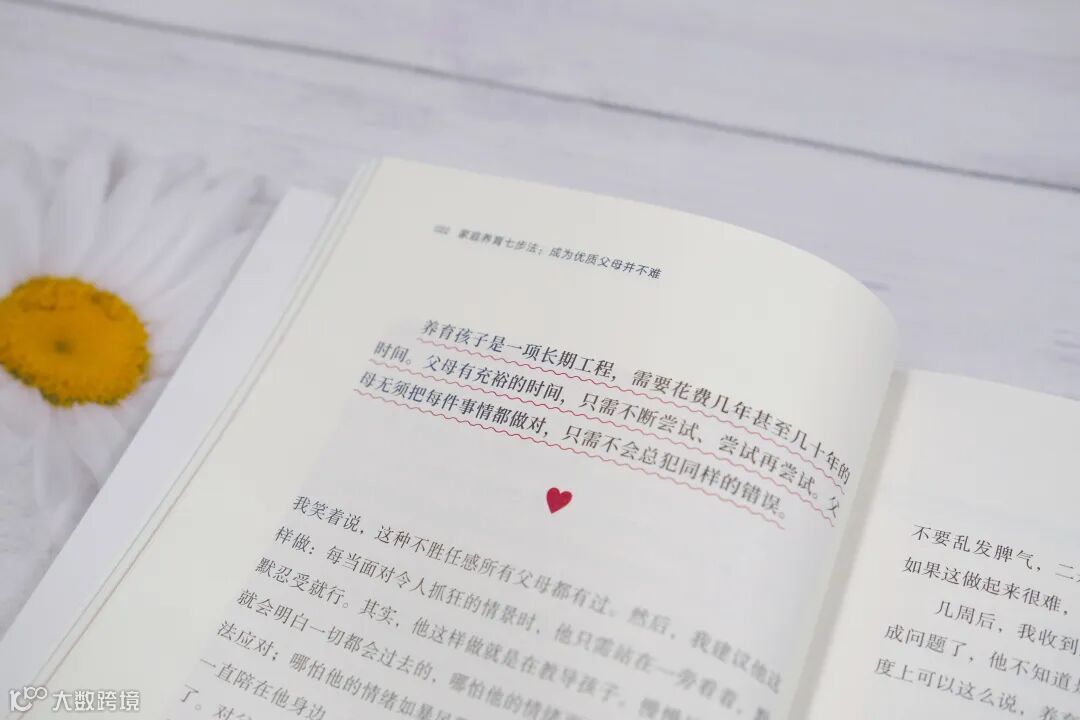 家庭养育七步法：成为优质父母并不难
养育孩子是一项长期工程，需要花费几年甚至几十年的
时间。父母有充裕的时间，只需不断尝试、尝试再尝试。父
母无须把每件事情都做对，只需不会总犯同样的错误。
我笑着说，这种不胜任感所有父母都有过。然后，我建议他这
样做：每当面对令人抓狂的情景时，他只需站在一旁看着，
默忍受就行。其实，他这样做就是在教导孩子，慢慢
就会明白一切都会过去的，哪怕他的情绪
法应对；哪怕他的情绪如是
一直陪在他身边
了。对父
不要乱发脾气，二
如果这做起来很难，
几周后，我收到
成问题了，他不知道是
度上可以这么说，养
大数跨境